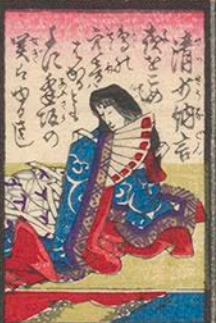 清少納言
夜をこめて
鳥の
空音は
はかるとも
よに逢坂の
関はゆるさし